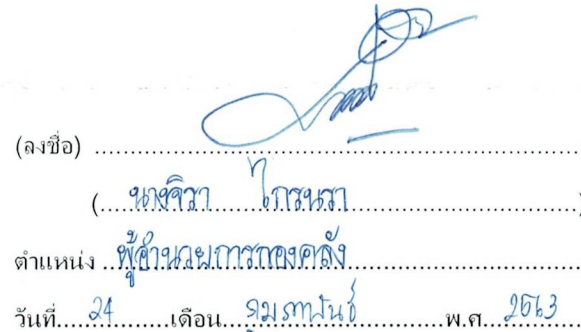 (ลงชื่อ) ........................................................
(.....นางจิรา ไกรนรา.....)
ตำแหน่ง ..ผู้อำนวยการกองคลัง..
วันที่.....24.....เดือน....กุมภาพันธ์....พ.ศ. 2563